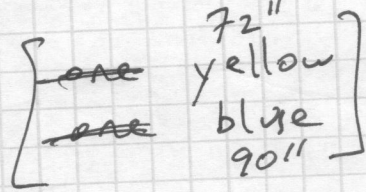 72"
one yellow
one blue
90"